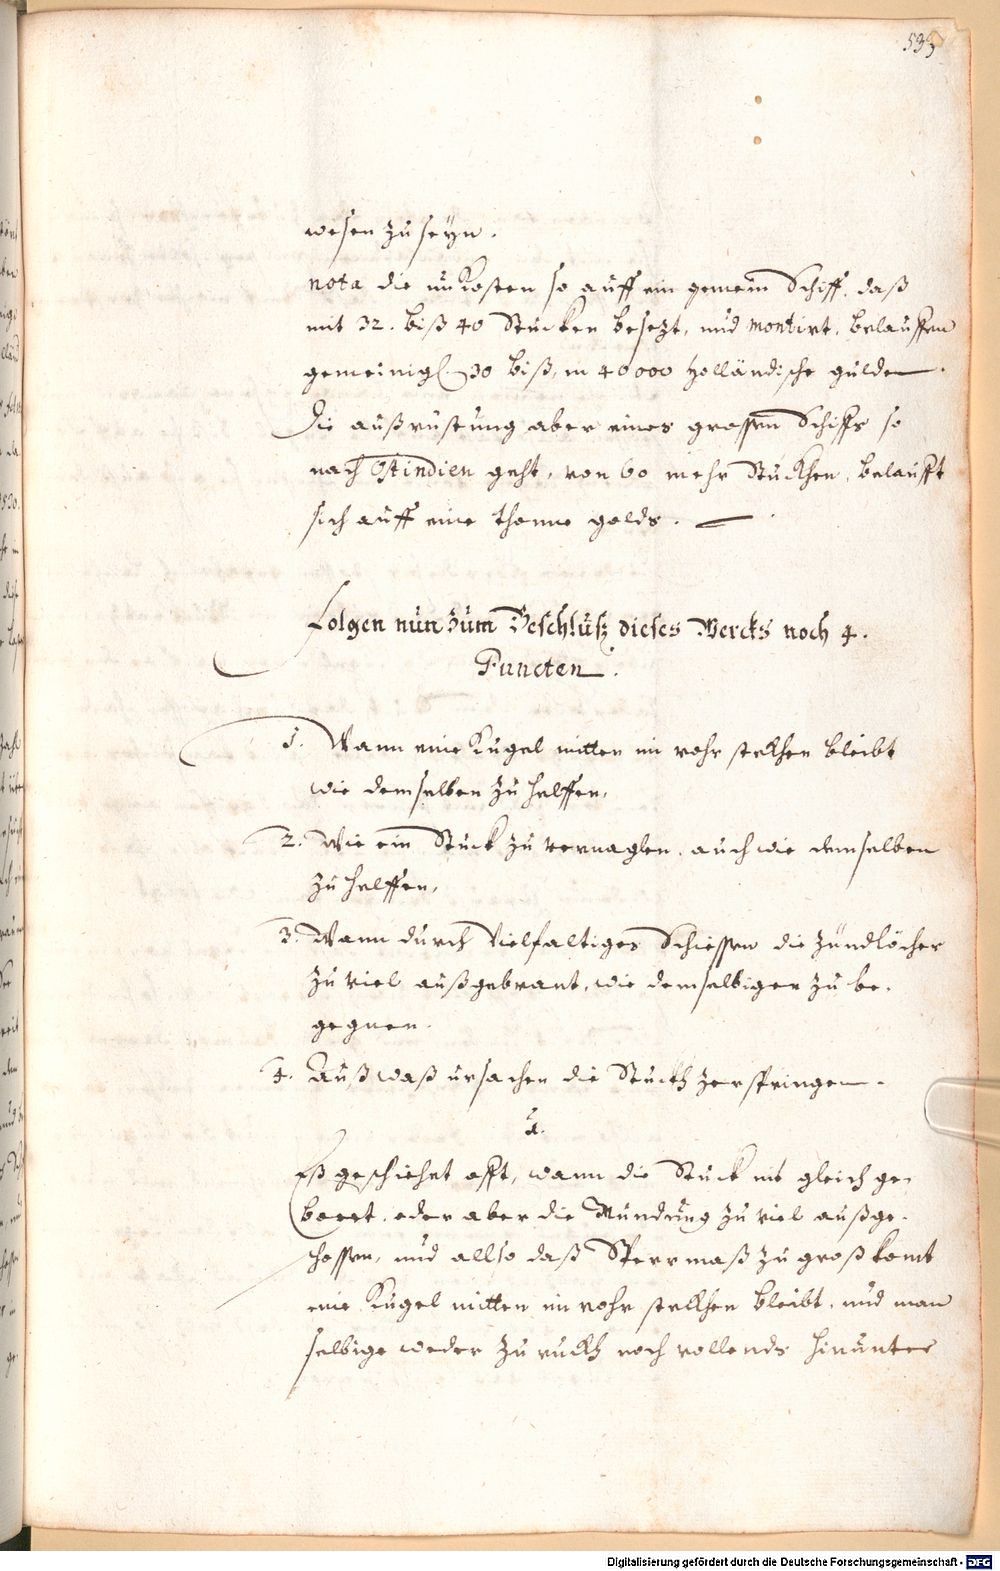 533
wesen zu seÿn.
nota die unkosten so auff ein gemein Schiff, daß
mit 32. biß 40 Stucken besezt, und montirt, belauffen
gemeinigl. 30 biß in 40000 Holländische gulden.
Die außrüstung aber eines grossen Schiffs so
nach Ostindien geht, von 60 mehr Stuckhen, belaufft
sich auff eine thonne golds.
Folgen nun zum Beschlusz dieses Wercks noch 4.
Puncten.
1. Wann eine Kugel mitten im rohr steckhen bleibt
wie demselben zu helffen,
2. Wie ein Stuck zu vernaglen, auch wie demselben
zu helffen,
3. Wann durch vielfaltiges Schiessen die zündlöcher
zu viel außgebrant, wie demselbigen zu be-
gegnen.
4. Auß waß ursachen die Stuckh zerspringen.
1.
Eß geschiehet offt, wann die Stuck nit gleich ge-
boert, oder aber die Mundung zu viel außge-
schossen, und allso daß Sperrmaß zu groß komt
eine Kugel mitten im rohr steckhen bleibt, und man
selbige weder zu ruckh noch vollends hinunter
Digitalisierung gefördert durch die Deutsche Forschungsgemeinschaft - DFG